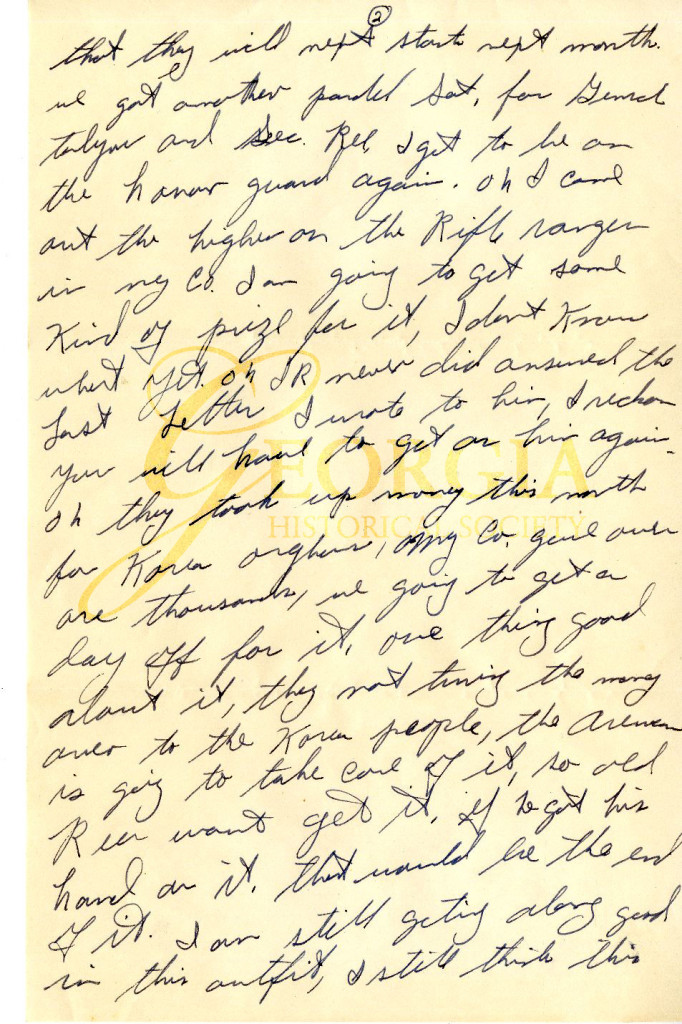 2
that they will nept start nept month.
we got another pardel Sat, for Genral
talyor and Sec. Ree, I get to be on
the honor guard again. oh I came
out the higher on the Rifle ranger
in my Co. I am going to get some
Kind of prize for it, I dont Know
what yet. oh JR never did answed the
Last Letter I wrote to him, I reckon
you will have to get on him again.
GEORGIA
HISTORICAL SOCIETY
oh they took up money this month
for Korea orghens, my Co. gave over
are thousands, we going to get a
day off for it, one thing good
about it, they not turing the money
over to the Korea people, the
is going to take care of it, so old
Ree want get it, if he got his
hand on it. that would be the end
of it. I am still geting along good
in this outfit, I still think this